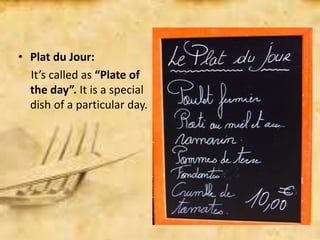 • Plat du Jour:
It's called as "Plate of
the day". It is a special
dish of a particular day.
Le Plat du jour
Poulet fumier
Roti au miel et au
romarin.
Pommes de terre
Fondantes.
Crumble de
tomates. 10,00 €